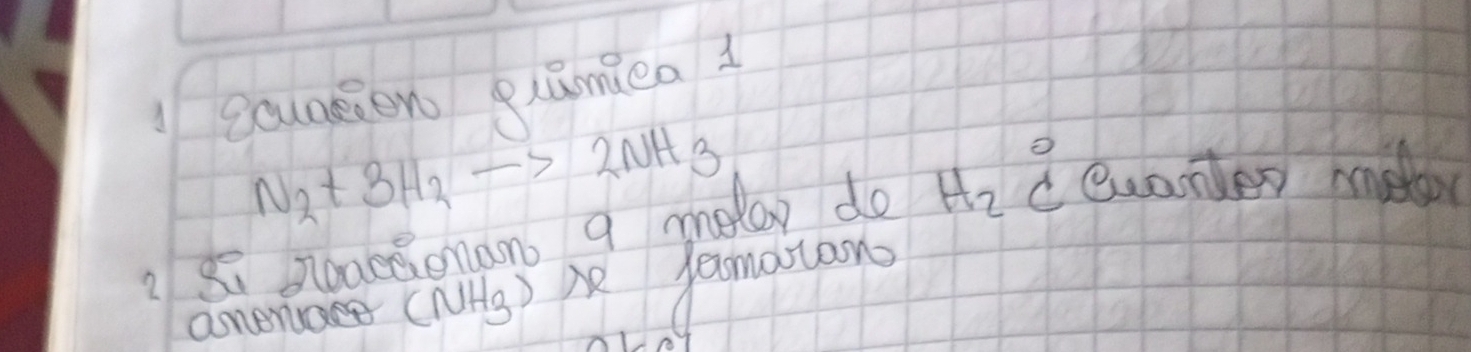 1 Ecuación química 1
N2 + 3H2 -> 2NH3
2 Si reaccionan 9 moles de H2 ¿Cuantos moles
amoniaco (NH3) se formaran